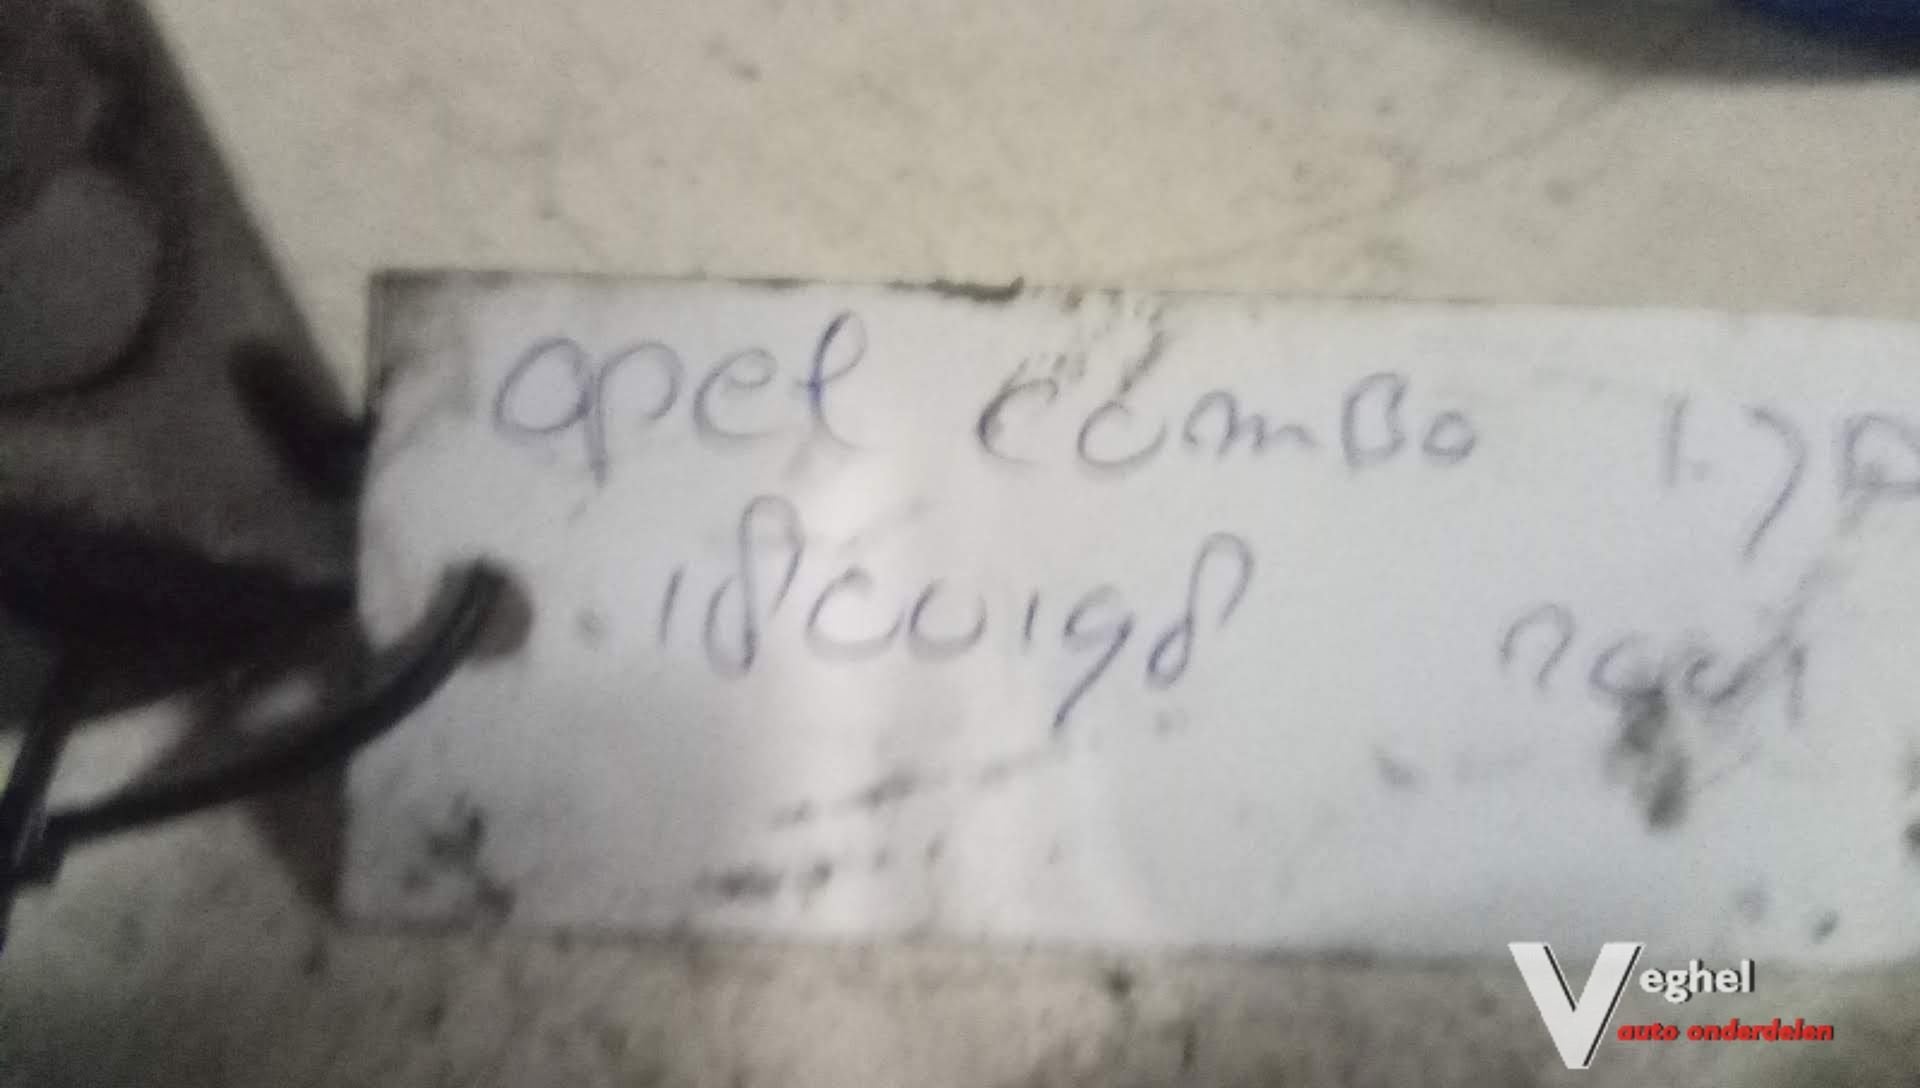 opel comBo 1.7D
1800198
Veghel
auto onderdelen